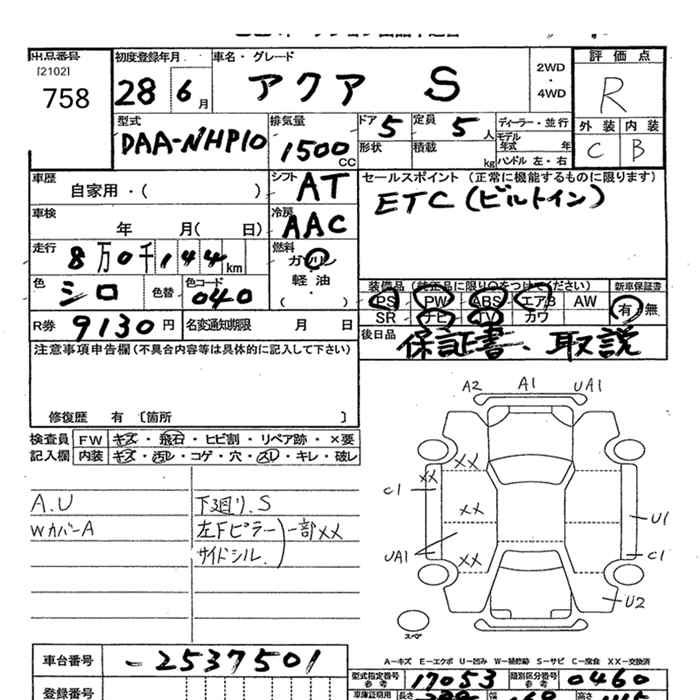 出品番号
[2102]
758
初度登録年月
28年 6月
車名・グレード
アクア S
2WD
・
4WD
評価点
R
型式
DAA-NHP10
排気量
1500 CC
ドア 5
定員 5 人
形状
積載 kg
ディーラー・並行
モデル年式 年
ハンドル 左・右
外装 内装
C B
車歴
自家用・( )
シフト AT
セールスポイント (正常に機能するものに限ります)
ETC (ビルトイン)
車検
年 月( 日)
冷房 AAC
走行
8万0千144km
燃料
ガソリン
軽油
・( )
色
シロ
色替
色コード
040
装備品 (純正品に限り○をつけてください)
新車保証書
PS PW ABS エアB AW
SR ナビ TV カワ
有・無
R券 9130円
名変通知期限 月 日
後日品
保証書、取説
注意事項申告欄(不具合内容等は具体的に記入して下さい)
修復歴 有 〔箇所 〕
検査員 FW キズ・飛石・ヒビ割・リペア跡・×要
記入欄 内装 キズ・汚レ・コゲ・穴・スレ・キレ・破レ
A.U
WカバーA
下廻り.S
左Fピラー
サイドシル
一部XX
A2 A1 UA1
XX
XX
C1
XX
U1
UA1
XX
C1
U2
スペア
A-キズ E-エクボ U-凹み W-補修跡 S-サビ C-腐食 XX-交換済
車台番号
-2537501
型式指定番号
参考
17053
類別区分番号
参考
0460
登録番号
車庫証明用
長さ
幅
高さ